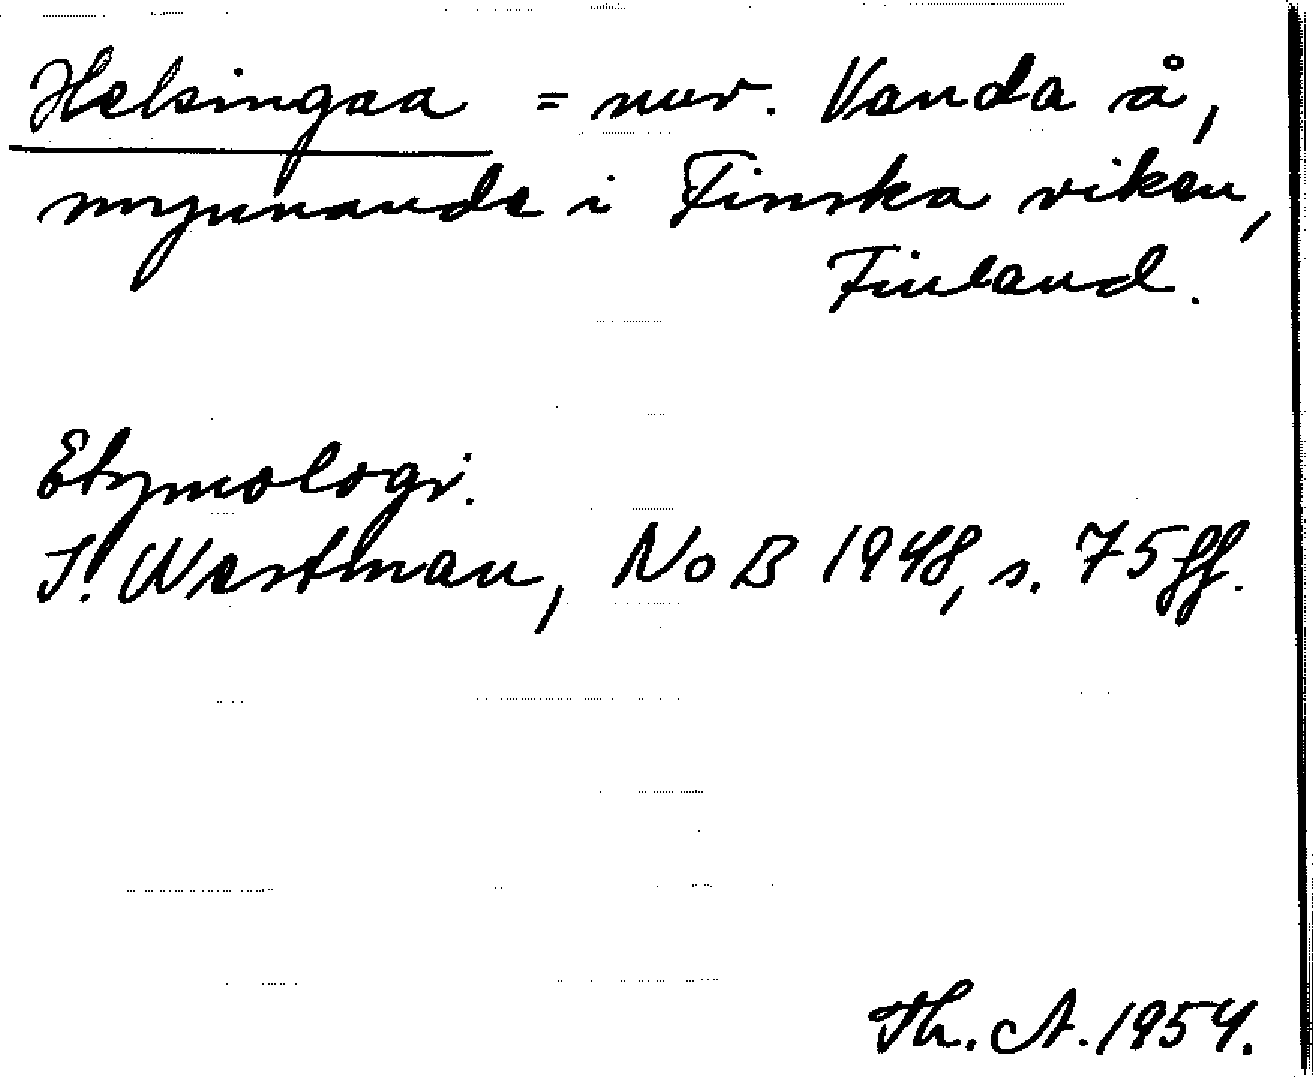 Helsingaa = nuv. Vanda å,
mynnande i Finska viken,
Finland.
Etymologi.
I. Westman, NoB 1948, s. 75 ff.
Th. A. 1954.